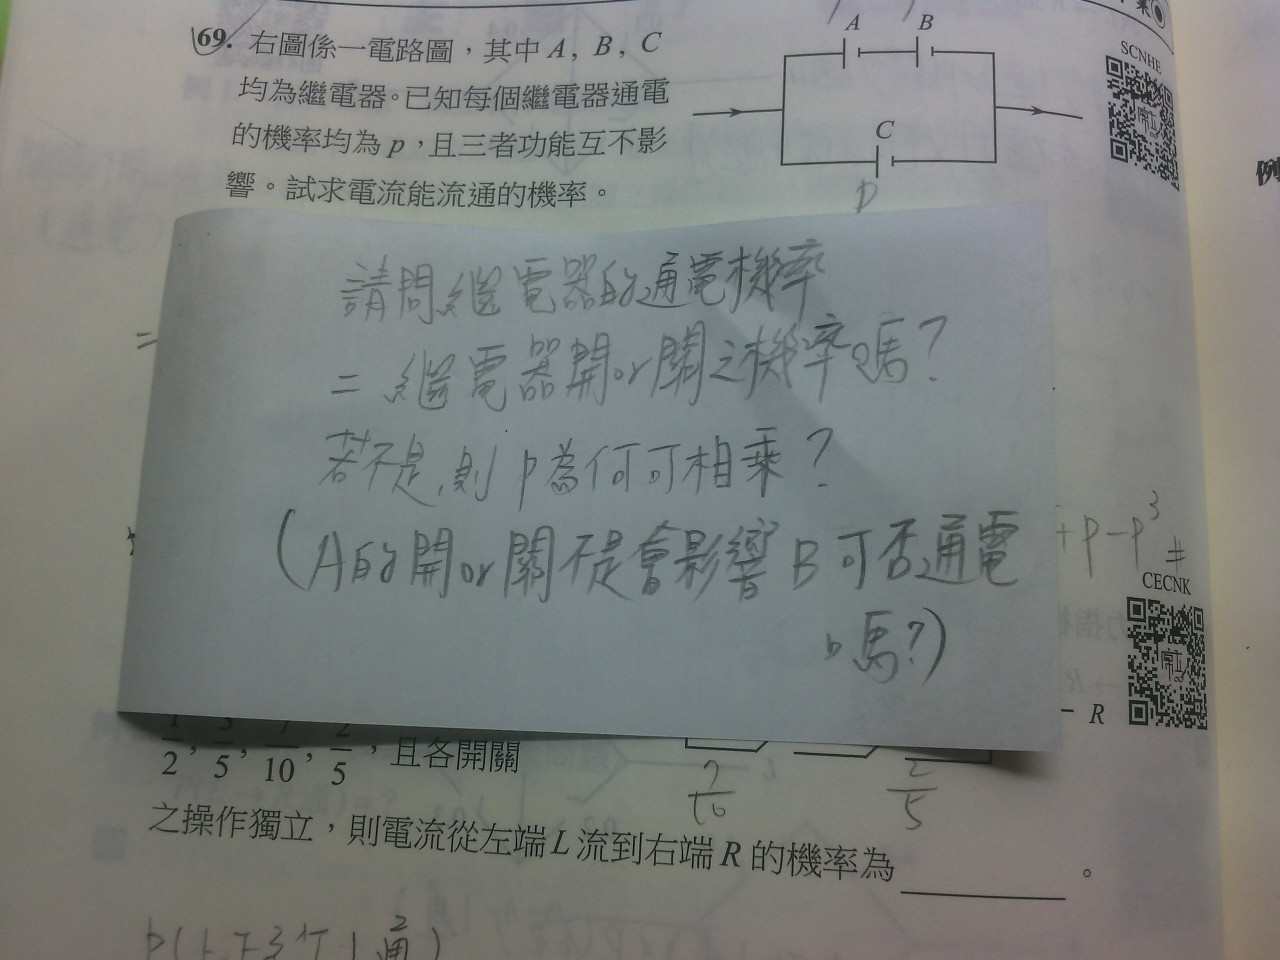 A B
SCNHE
69. 右圖係一電路圖，其中 A, B, C
均為繼電器。已知每個繼電器通電
的機率均為 p，且三者功能互不影
響。試求電流能流通的機率。
C
p
請問繼電器的通電機率
= 繼電器開or關之機率嗎?
若不是,則 p為何可相乘?
(A的開or關不是會影響 B 可否通電
嗎?)
=
+ p - p³ #
CECNK
R
1/2, 3/5, 7/10, 2/5，且各開關
7/10 2/5
之操作獨立，則電流從左端 L 流到右端 R 的機率為 。
例